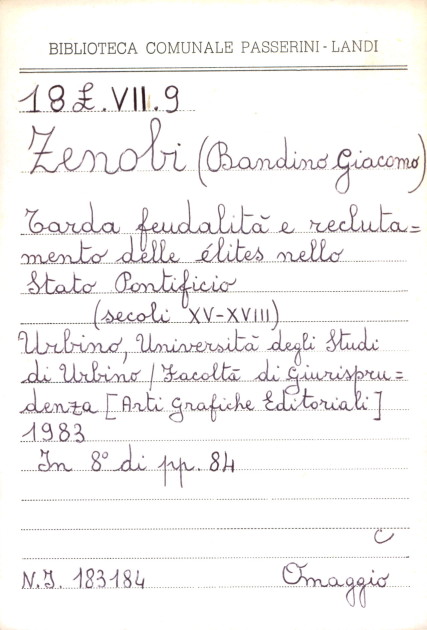 BIBLIOTECA COMUNALE PASSERINI-LANDI
18 £.VII.9
Zenobi (Bandino Giacomo)
Tarda feudalità e recluta=
mento delle élites nello
Stato Pontificio
(secoli XV-XVIII)
Urbino, Università degli Studi
di Urbino / Facoltà di Giurispru=
denza [Arti Grafiche Editoriali]
1983
In 8° di pp. 84
C
N.I. 183184
Omaggio